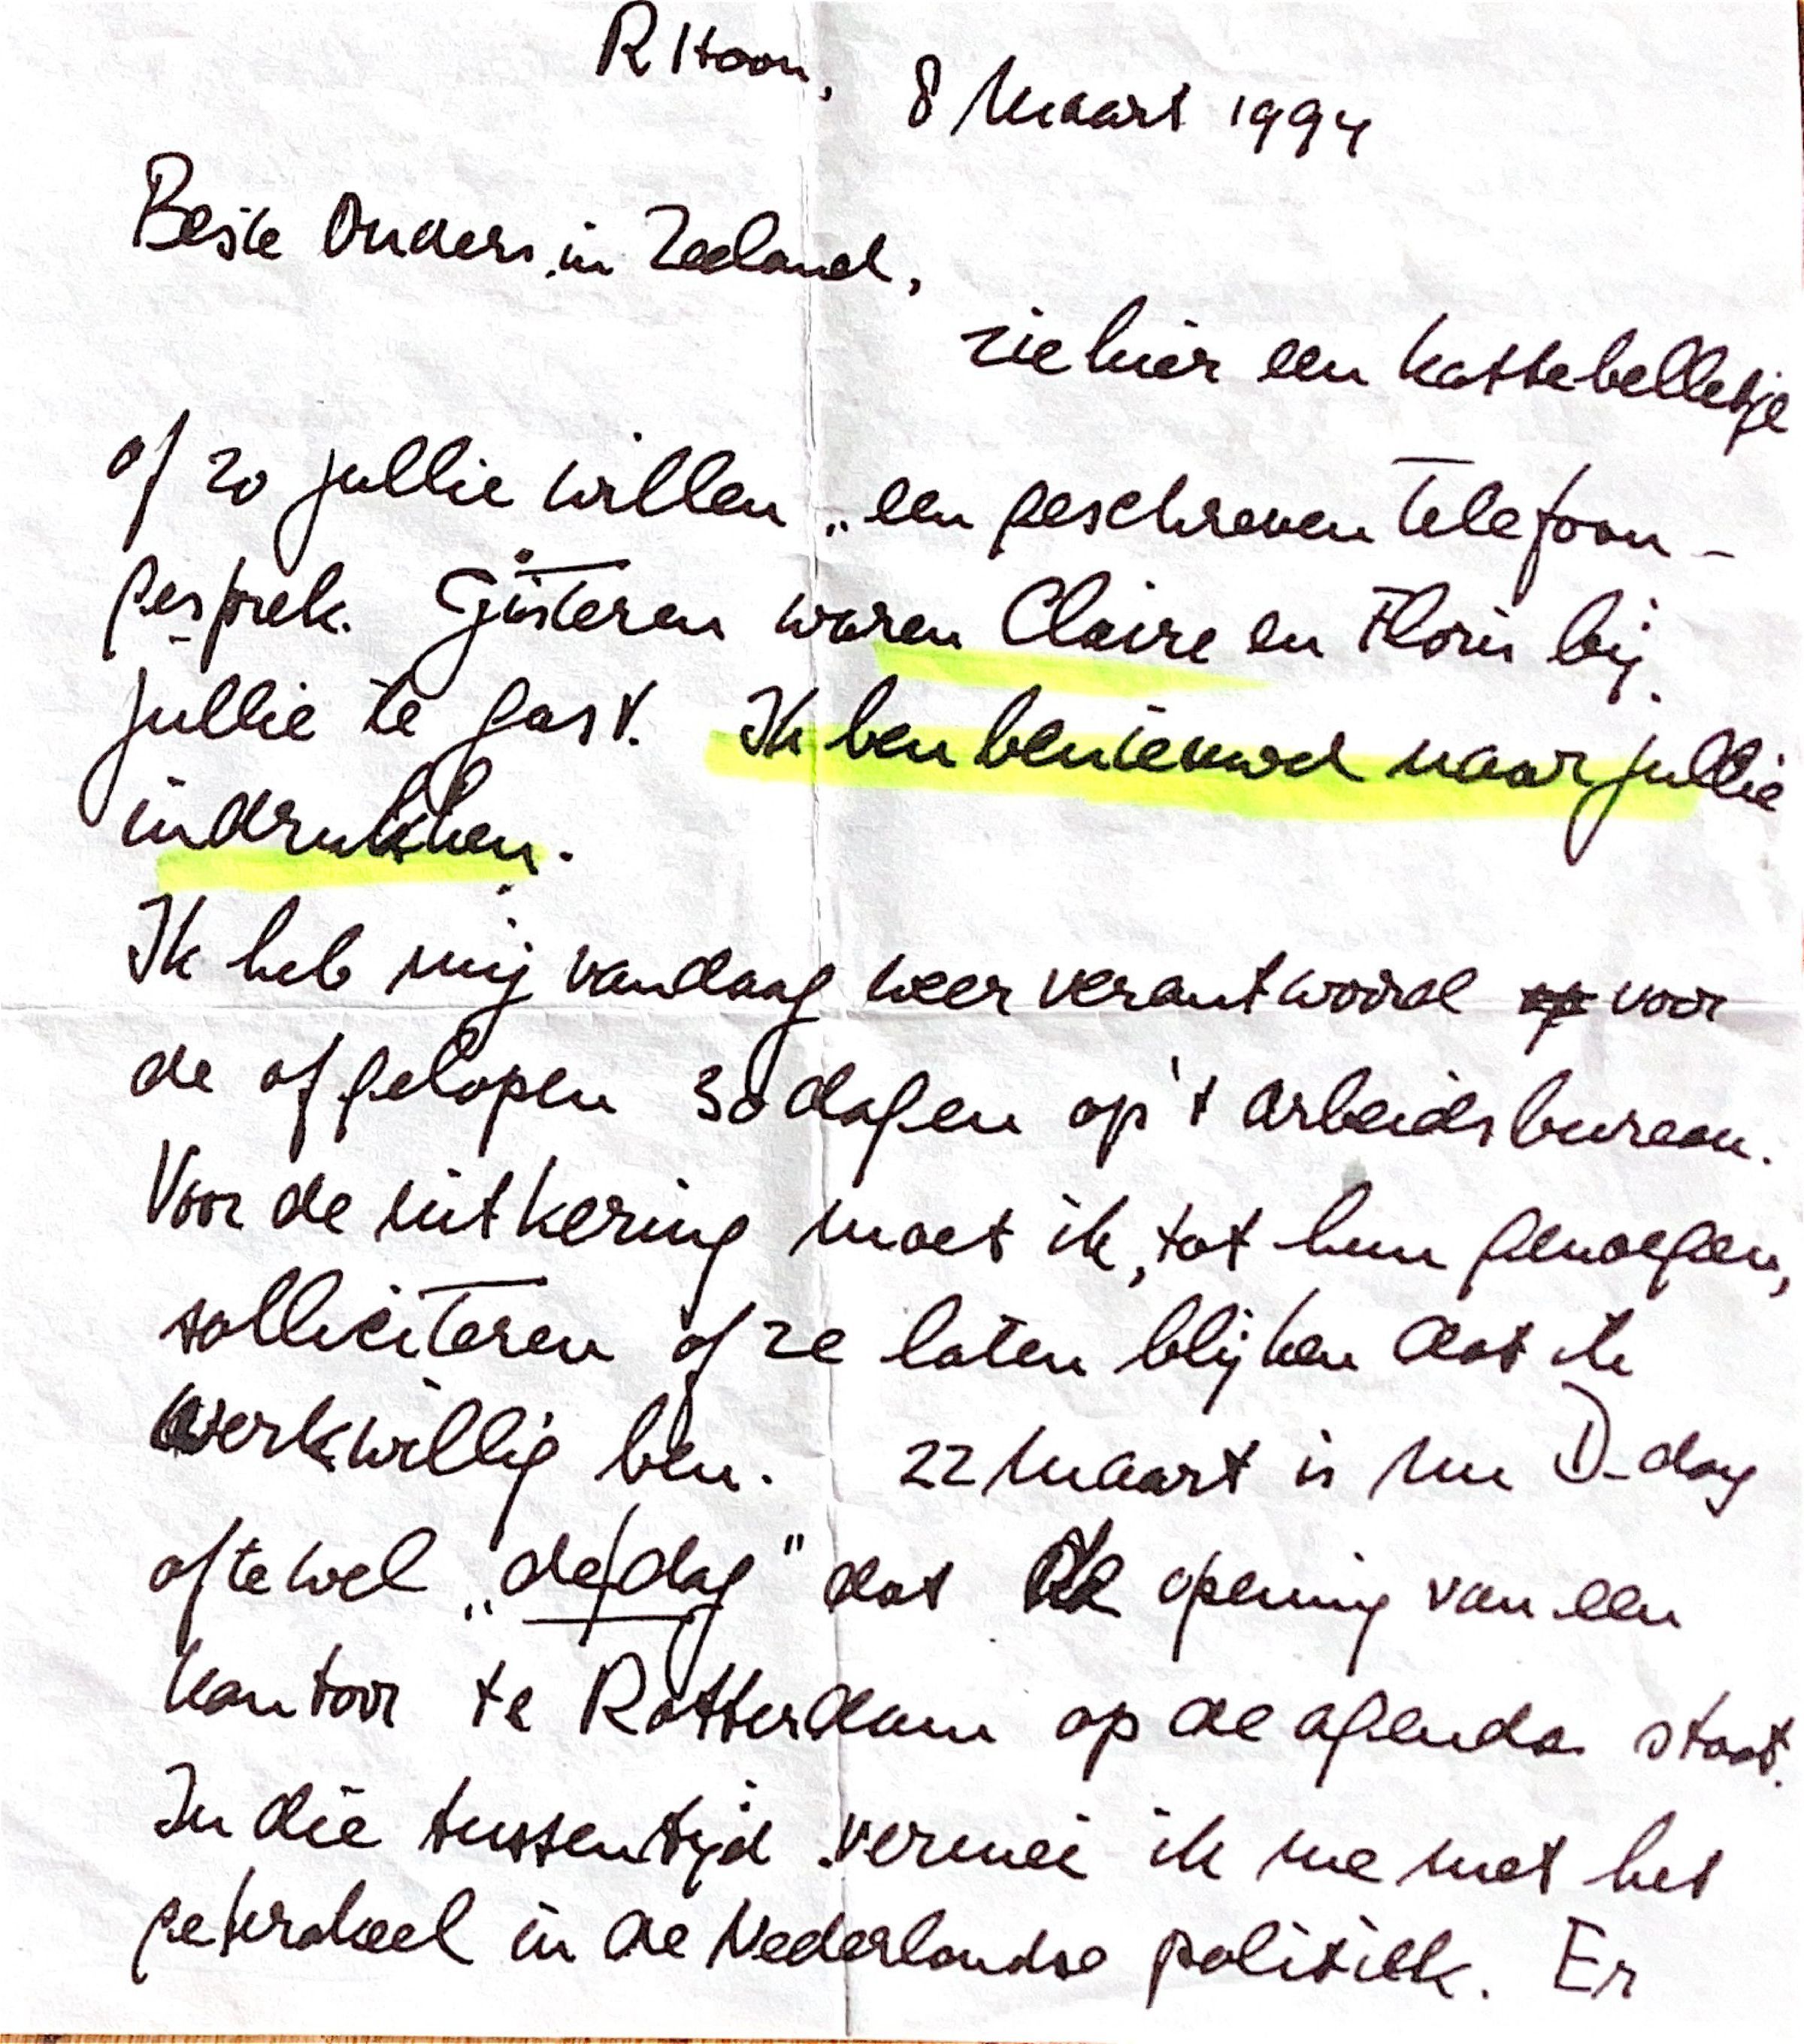 RHoon,
8 Maart 1994
Beste Ouders in Zeeland,
ziehier een kattebelletje
of zo jullie willen „een geschreven Telefoon-
gesprek. Gisteren waren Claire en Floris bij
jullie te gast. Ik ben benieuwd naar jullie
indrukken.
Ik heb mij vandaag weer verantwoord voor
de afgelopen 30 dagen op 't arbeidsbureau.
Voor de uitkering moet ik, tot hun genoegen,
solliciteren of ze laten blijken dat ik
werkwillig ben. 22 Maart is nu D-day
oftewel „de dag" dat de opening van een
kantoor te Rotterdam op de agenda staat.
In die tussentijd vermei ik me met het
gekrakeel in de Nederlandse politiek. Er